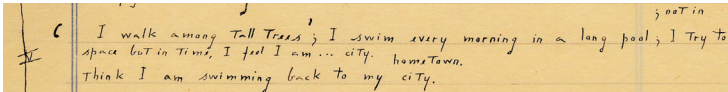 ; not in
C I walk among Tall Trees'; I swim every morning in a long pool; I Try To
V space but in Time, I feel I am ... ciTy. homeTown.
Think I am swimming back to my ciTy.